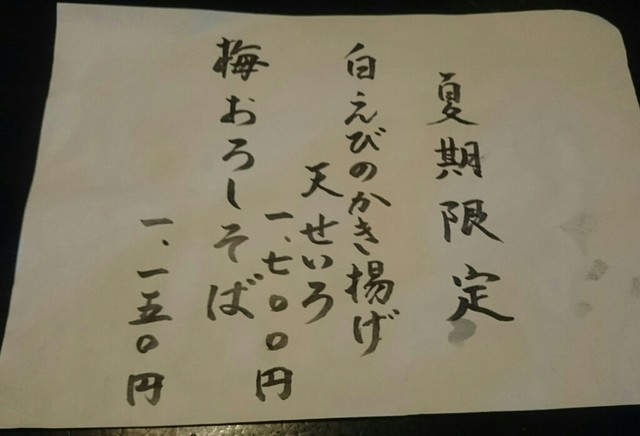 夏期限定
白えびのかき揚げ
天せいろ
一、七〇〇円
梅おろしそば
一、一五〇円